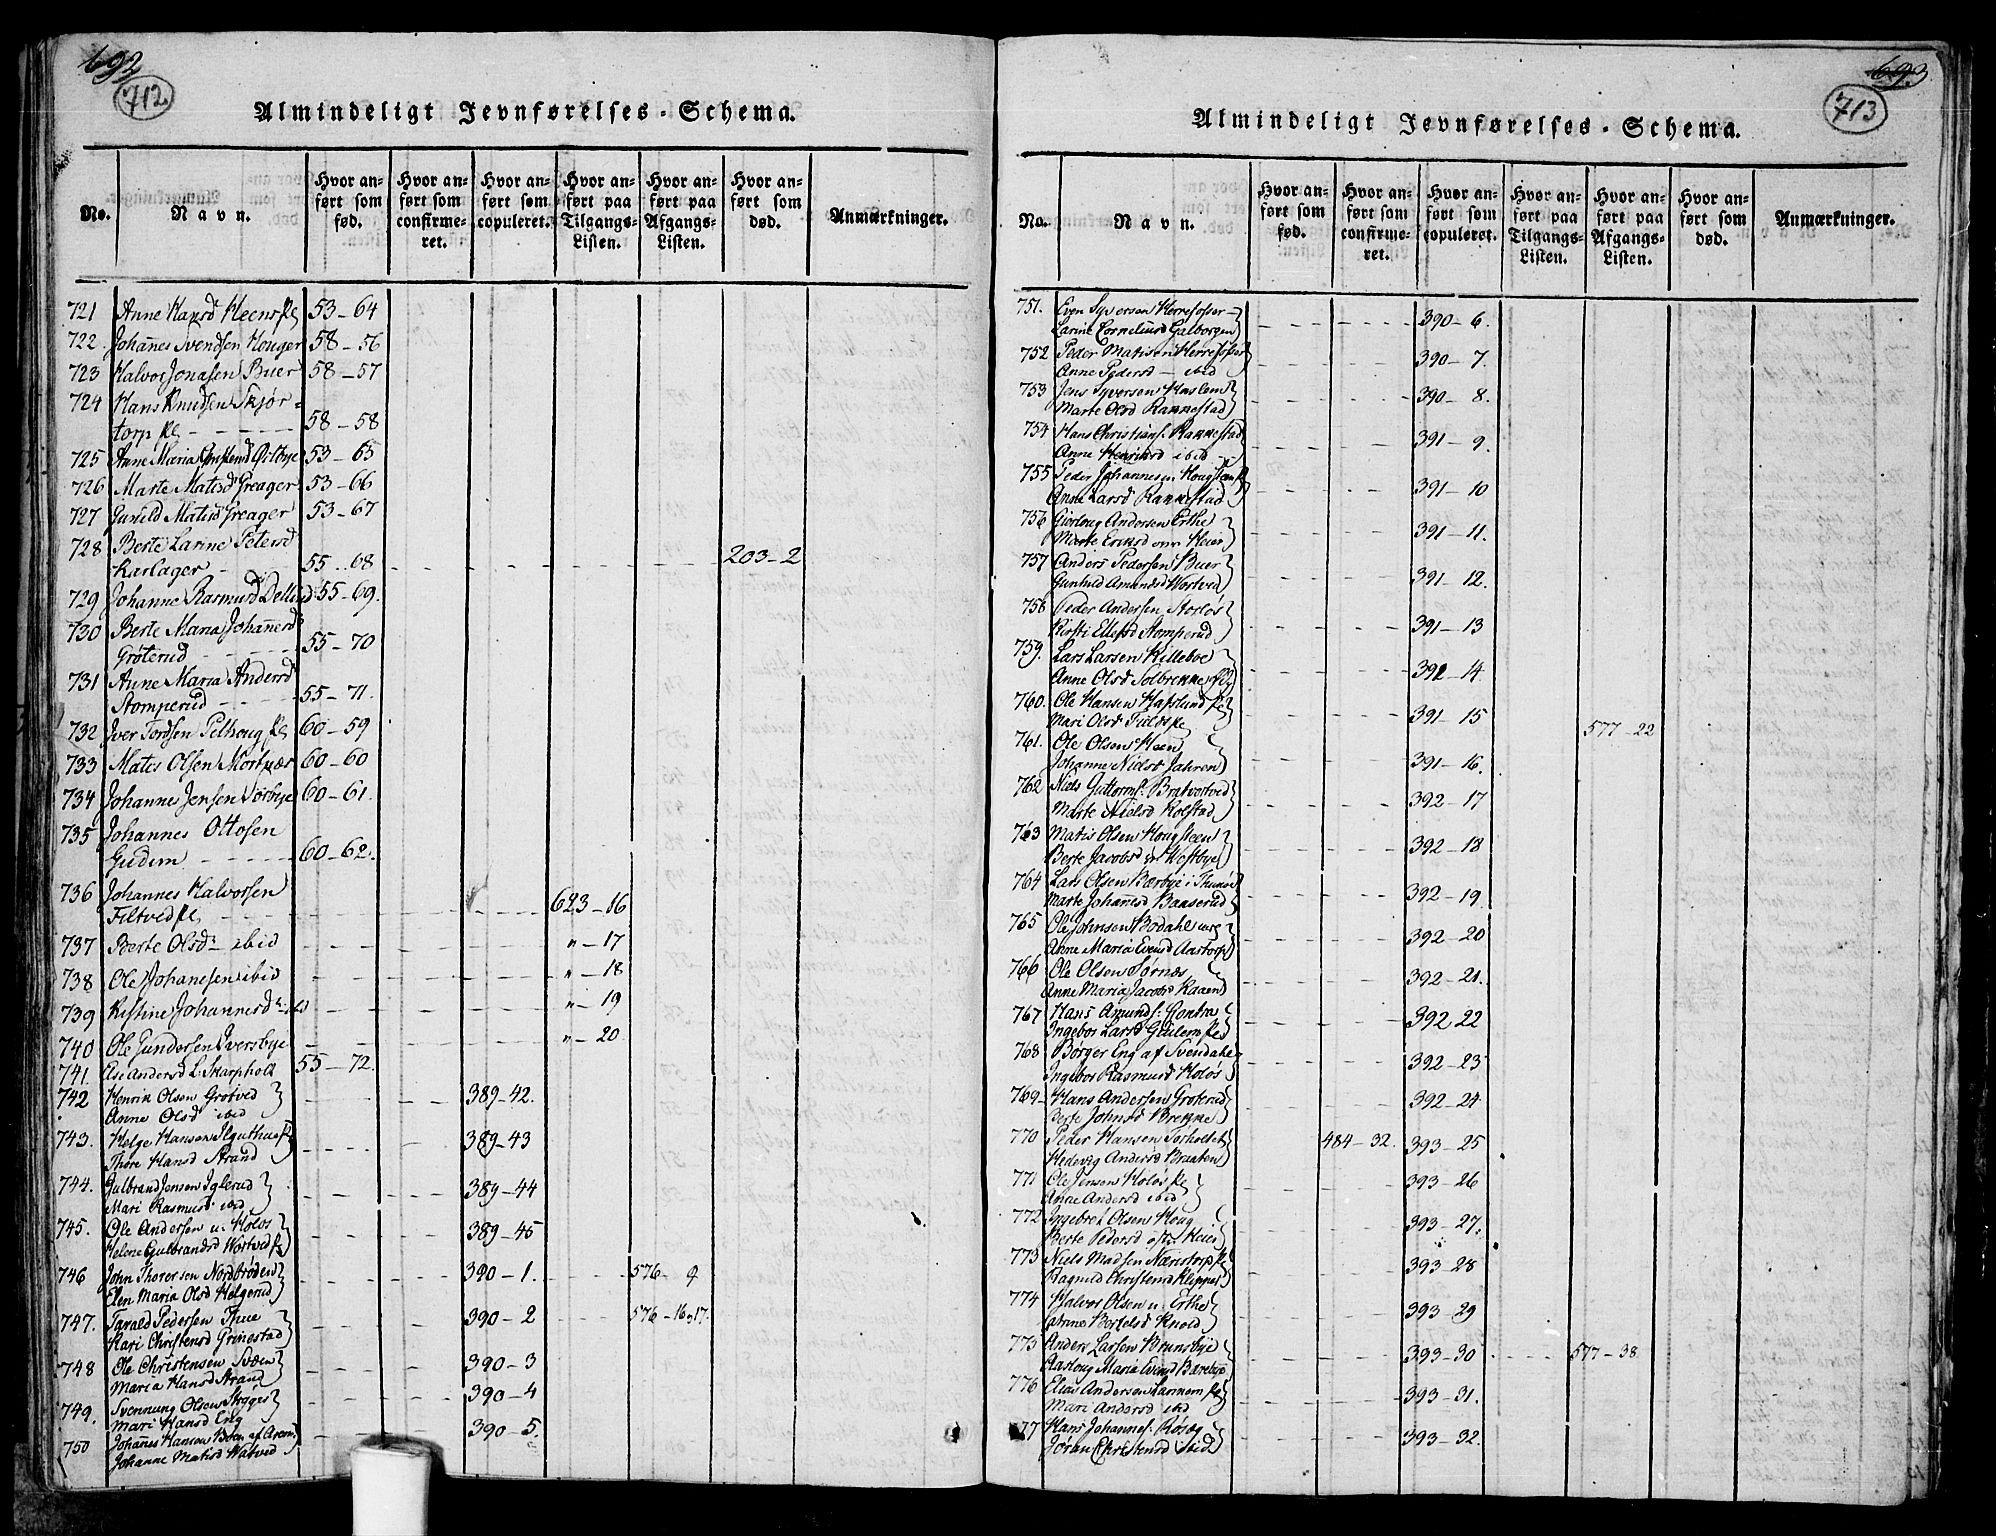 692
712
Almindeligt Jevnførelses-Schema.
No.
Navn.
Hvor anført som fød.
Hvor anført som confirmeret.
Hvor anført som copuleret.
Hvor anført paa Tilgangs-Listen.
Hvor anført paa Afgangs-Listen.
Hvor anført som død.
Anmærkninger.
721 Anne Hansd 53-64
722. Johañes Svendsen Houger 58-56
723 Halvor Jonasen Buer 58-57
724 Hans Knudsen Skjør-
torp 58-58
725 Anne Maria 53-65
726 Marte Matisd Greager 53-66
727 Gunild Matisd Greager 53-67
728 Berte Larine Petersd
Karlager 55..68 203-2
729 Johanne Rasmusd 55-69.
730 Berte Maria Johañesd
Grøterud 55-70
731 Anne Maria Andersd
Stomperud 55-71.
732 Iver Tordsen 60-59
733 Mates Olsen 60-60
734 Johannes Jensen Sørbye 60-61.
735 Johannes Ottosen
Gudim 60-62.
736 Johannes Halvorsen
Filtved 623-16
737 Berte Olsd ibid " - 17
738 Ole Johanesen ibid " - 18
739 Kristine Johannesd " - 19
740 Ole Gundersen Iversbye " - 20
741. Else Andersd Skarpholt 55-72.
742 Henrik Olsen Grøtved
Anne Olsd ibid 389-42.
743. Helge Hansen
Thore Hansd Strand 389-43
744. Gulbrand Jensen Iglerud
Mari Rasmusd ibid 389-44
745. Ole Andersen u: Holøs
Helene Gulbrandsd Wortved 389-45
746 John Thoresen Nordbrøden
Elen Maria Olsd Helgerud 390-1. 576-9
747. Tarald Pedersen Thue
Kari Christensd Grinestad 390-2 576-16,17.
748 Ole Christensen Sveen
Maria Hansd Strand 390-3
749. Svennung Olsen
Mari Hansd Eng 390-4
750 Johañes Hansen
Johanne Matisd Watved 390-5.
693
713
Almindeligt Jevnførelses-Schema.
No.
Navn.
Hvor anført som fød.
Hvor anført som confirmeret.
Hvor anført som copuleret.
Hvor anført paa Tilgangs-Listen.
Hvor anført paa Afgangs-Listen.
Hvor anført som død.
Anmærkninger.
751. Even Syversen Herrefosser
Larine Corneliusd Galborgen 390-6.
752 Peder Matisen Herrefosser
Anne Pedersd - ibid 390-7.
753 Jens Syversen Haslem
Marte Olsd Rakkestad 390-8.
754 Hans Christians: Rakkestad
Anne Henriksd ibid 391-9
755 Peder Johannesen
Anne Larsd Rakkestad 391-10
756 Andersen Erthe
Marte Eriksd Heier 391-11.
757 Anders Pedersen Buer
Gunhild Amundsd Wortved 391-12.
758 Peder Andersen Storløs
Kirsti Ellefsd Stomperud 391-13
759. Lars Larsen Killeboe
Anne Olsd Solbrekke 392-14
760. Ole Hansen Haslund
Mari Olsd 391-15 577-22
761. Ole Olsen Heen
Johanne Nielsd Jahren 391-16.
762 Niels Guttorms: Bratvortved
Marte Nielsd Kolstad 392-17
763 Matis Olsen Hougsteen
Berte Jacobsd Westbye 392-18
764 Lars Olsen Bærbye i Thunøe
Marte Johanesd Baaserud 392-19.
765 Ole Johnsen Bodahl
Anne Maria Evensd Aastorp 392-20
766 Ole Olsen Sørnæs
Anne Maria Jacobs Raaend 392-21.
767 Hans Amunds:
Ingebor Larsd 392 22
768 Børger Eng af Svendahl
Ingebor Rasmusd Holøs 392-23
769- Hans Andersen Grøterud
Berte Johnsd Brekke 392-24
770 Peder Hansen Torholtet
Hedevig Andersd Braaten 484-32. 393-25
771 Ole Jensen Holøs
Anne Andersd ibid 393-26
772 Ingebret Olsen Houg
Berte Pedersd Heier 393-27.
773 Niels Madsen Næsstorp
Ragnild Christensd Klipper 393-28
774 Halvor Olsen u. Erthe
Anne Bertelsd Knold 393-29
775 Anders Larsen Brunsbye
Aasloug Maria Evensd Bærbye 393-30 577-38
776 Elias Andersen
Mari Andersd ibid 393-31.
777 Hans Johannes: Røsæg
Jøran Christensd ibid 393-32.